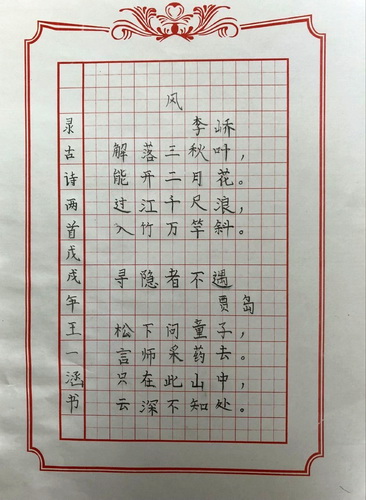 风
李峤
解落三秋叶，
能开二月花。
过江千尺浪，
入竹万竿斜。
寻隐者不遇
贾岛
松下问童子，
言师采药去。
只在此山中，
云深不知处。
录古诗两首戊戌年王一涵书